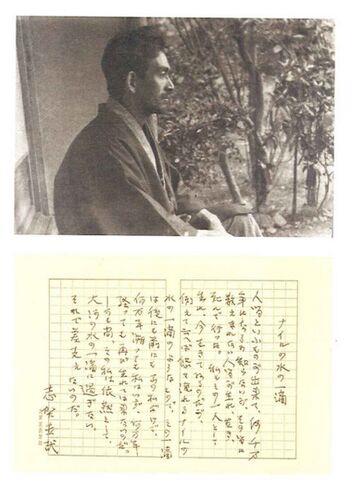 ナイルの水の一滴
人間といふものが出来て、何千万
年になるか知らないが、その間に
数えきれない人間が生れ、生き、
死んで行つた。私もその一人として
生れ、今生きてゐるのだが、
例へて云へば悠々流れるナイルの
水の一滴のやうなもので、その一滴
は後にも前にもこの私だけで、
何万年溯つても私はゐず、何万年
経つても再び生れては来ないのだ。
しかも尚その私は依然として
大河の水の一滴に過ぎない。
それで差支へないのだ。
志賀直哉